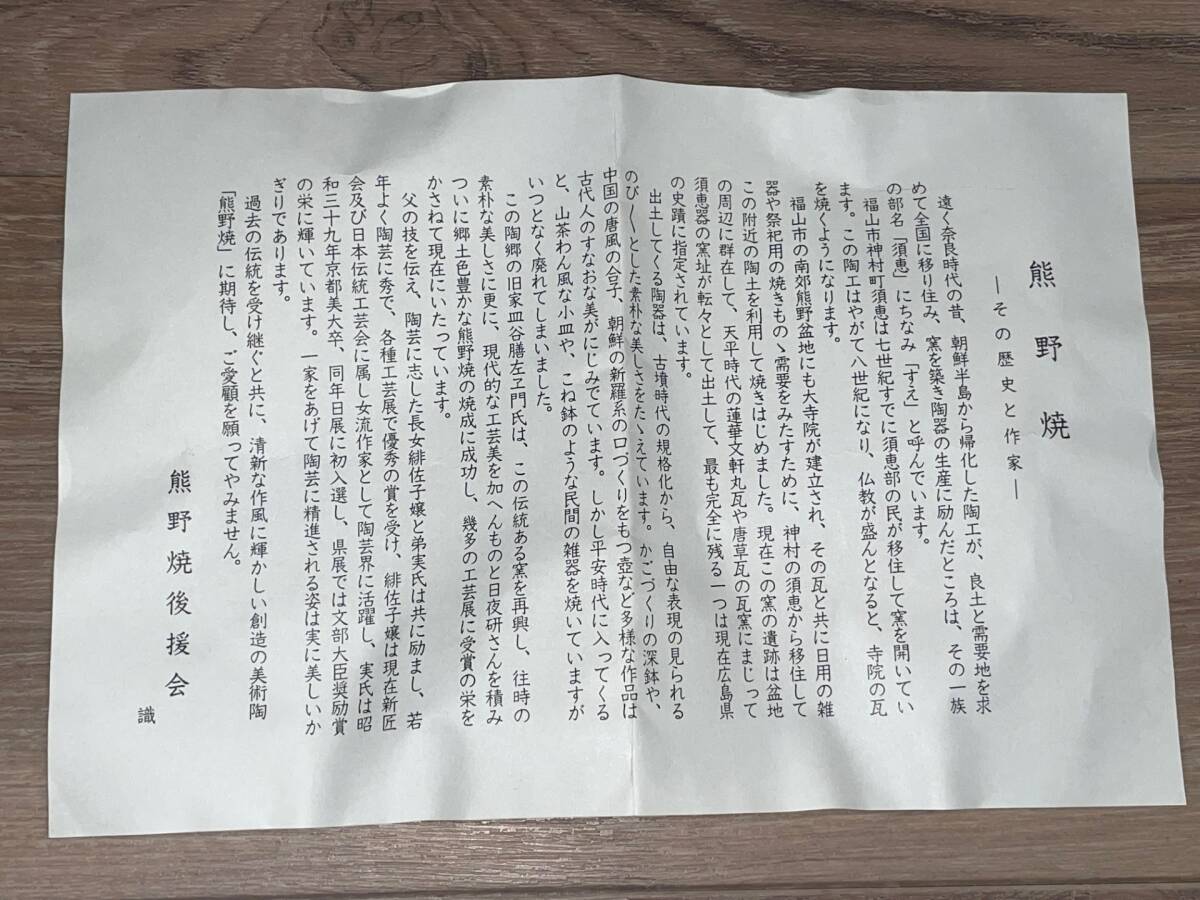 熊野焼
―その歴史と作家―
遠く奈良時代の昔、朝鮮半島から帰化した陶工が、良土と需要地を求
めて全国に移り住み、窯を築き陶器の生産に励んだところは、その一族
の部名「須恵」にちなみ「すえ」と呼んでいます。
福山市神村町須恵は七世紀すでに須恵部の民が移住して窯を開いてい
ます。この陶工はやがて八世紀になり、仏教が盛んとなると、寺院の瓦
を焼くようになります。
福山市の南郊熊野盆地にも大寺院が建立され、その瓦と共に日用の雑
器や祭祀用の焼きものゝ需要をみたすために、神村の須恵から移住して
この附近の陶土を利用して焼きはじめました。現在この窯の遺跡は盆地
の周辺に群在して、天平時代の蓮華文軒丸瓦や唐草瓦の瓦窯にまじって
須恵器の窯址が転々として出土して、最も完全に残る一つは現在広島県
の史蹟に指定されています。
出土してくる陶器は、古墳時代の規格化から、自由な表現の見られる
のび〱とした素朴な美しさをたゝえています。かごづくりの深鉢や、
中国の唐風の合子、朝鮮の新羅系の口づくりをもつ壺など多様な作品は
古代人のすなおな美がにじみでています。しかし平安時代に入ってくる
と、山茶わん風な小皿や、こね鉢のような民間の雑器を焼いていますが
いつとなく廃れてしまいました。
この陶郷の旧家皿谷膳左ヱ門氏は、この伝統ある窯を再興し、往時の
素朴な美しさに更に、現代的な工芸美を加へんものと日夜研さんを積み
ついに郷土色豊かな熊野焼の焼成に成功し、幾多の工芸展に受賞の栄を
かさねて現在にいたっています。
父の技を伝え、陶芸に志した長女緋佐子嬢と弟実氏は共に励まし、若
年よく陶芸に秀で、各種工芸展で優秀の賞を受け、緋佐子嬢は現在新匠
会及び日本伝統工芸会に属し女流作家として陶芸界に活躍し、実氏は昭
和三十九年京都美大卒、同年日展に初入選し、県展では文部大臣奨励賞
の栄に輝いています。一家をあげて陶芸に精進される姿は実に美しいか
ぎりであります。
過去の伝統を受け継ぐと共に、清新な作風に輝かしい創造の美術陶
「熊野焼」に期待し、ご愛顧を願ってやみません。
熊野焼後援会
識